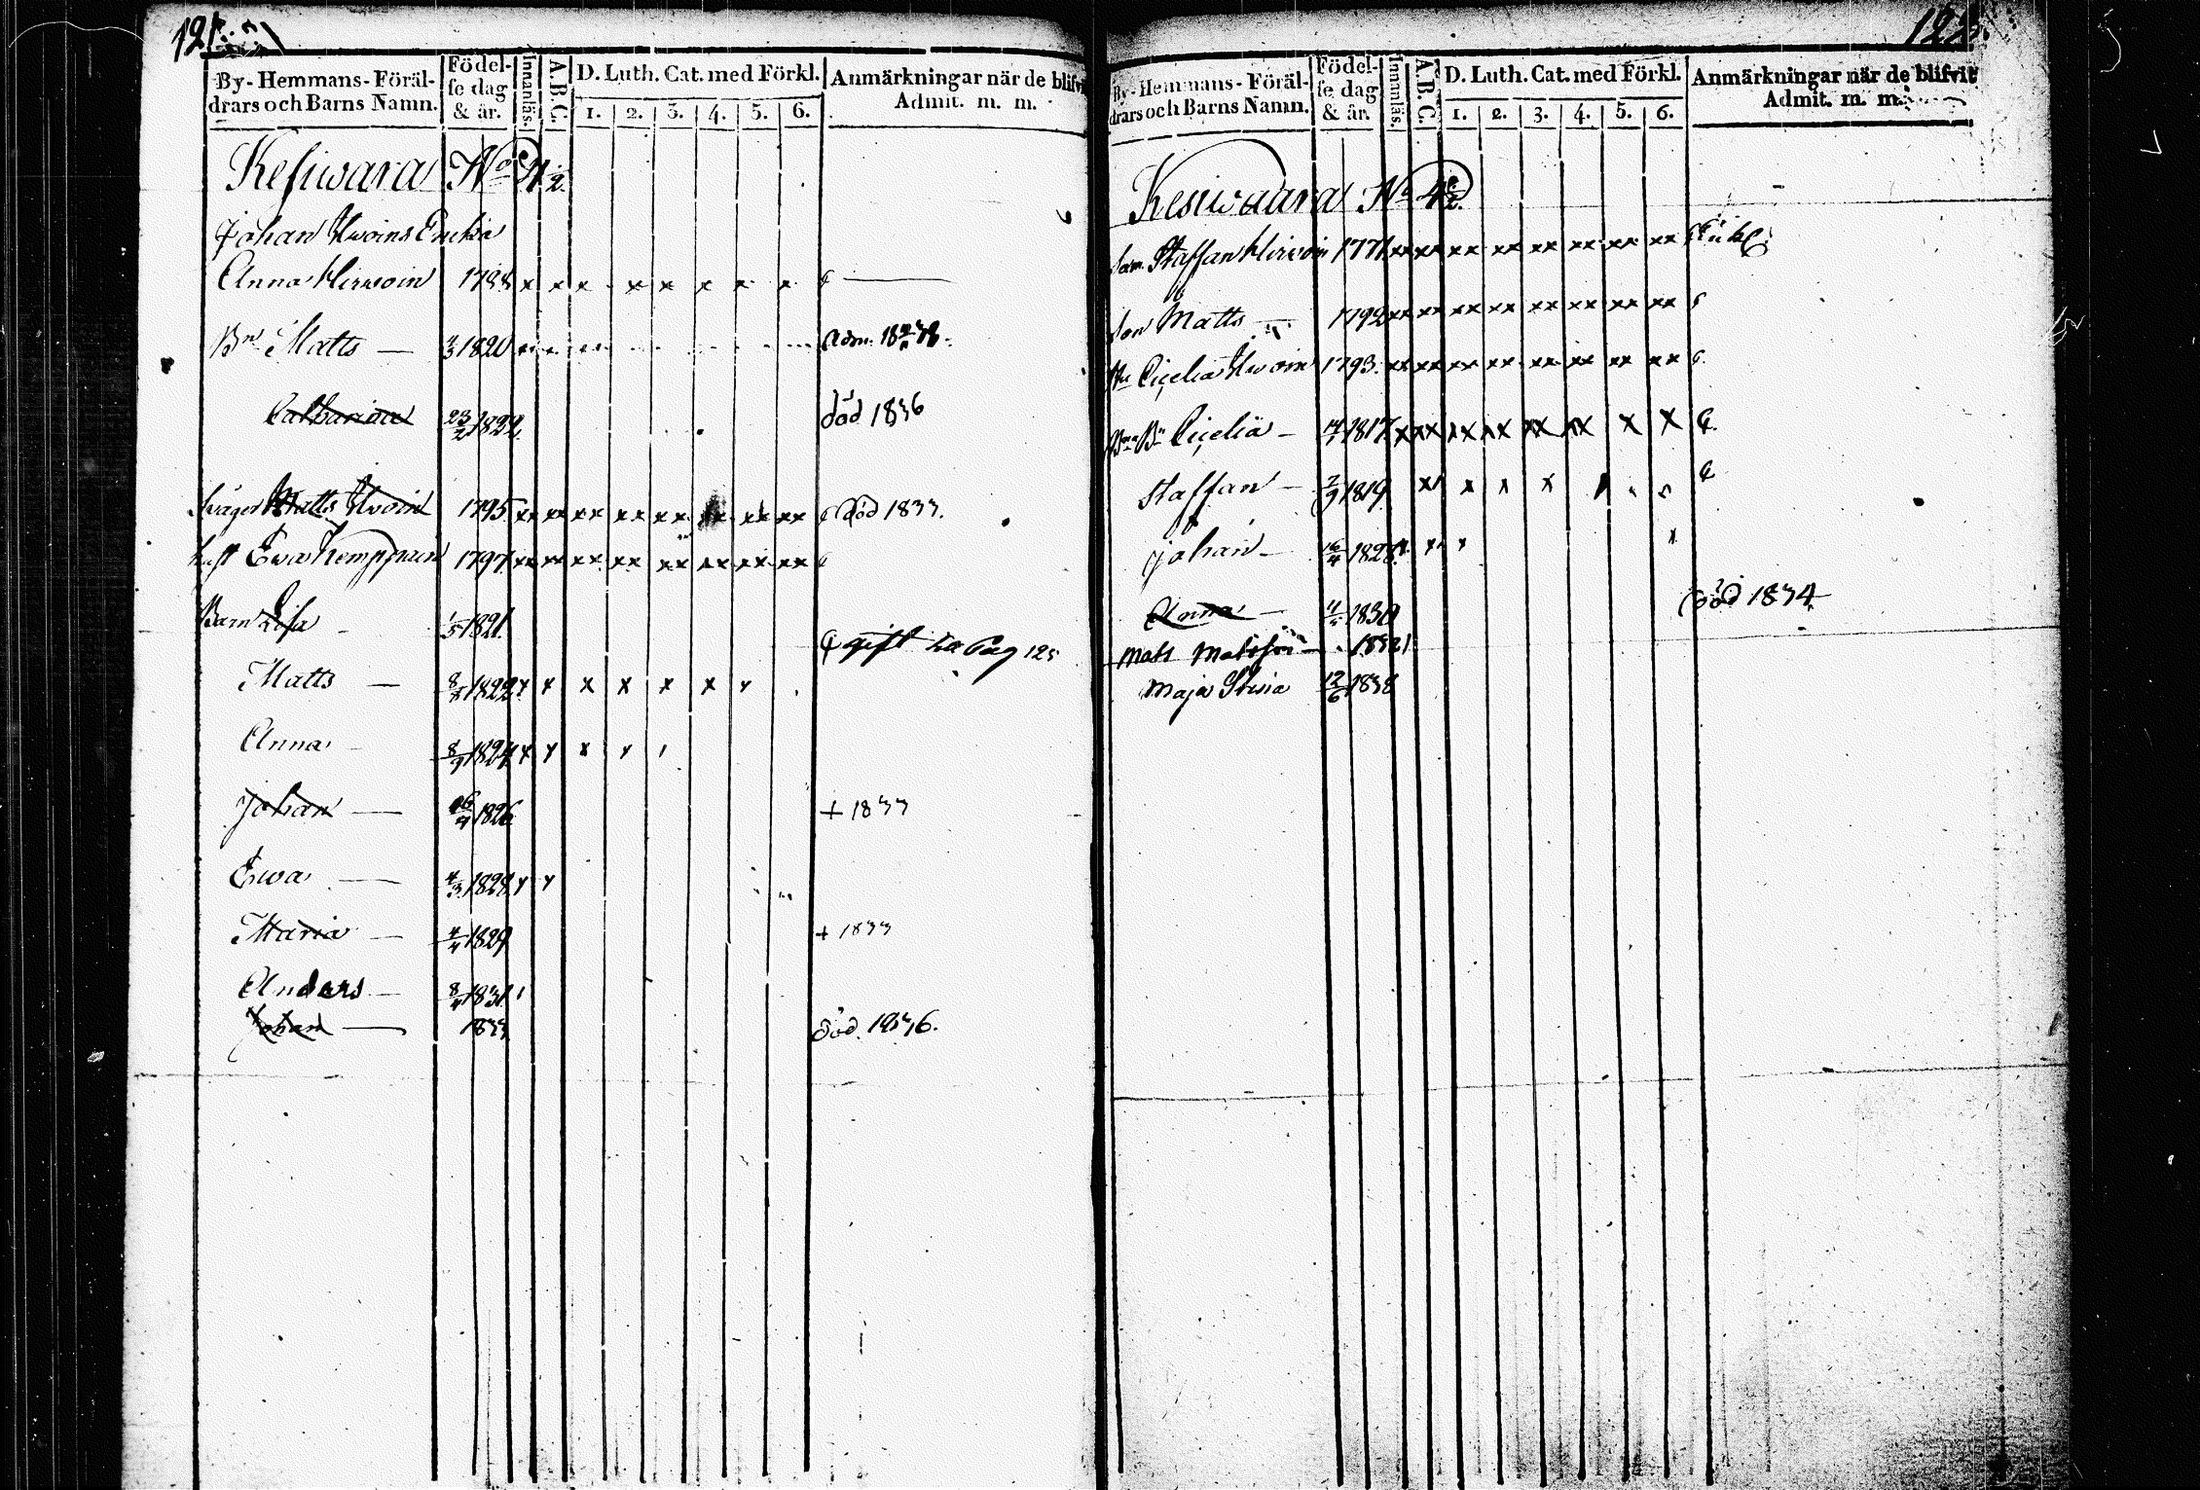 121.
By-Hemmans-Föräl-
drars och Barns Namn.
Födel-
se dag
& år.
Innanläs.
A.B.C.
D. Luth. Cat. med Förkl.
1. 2. 3. 4. 5. 6.
Anmärkningar när de blifvit
Admit. m. m.
Kesiwara No 4 1/2.
Johan Hirvoins Enka
Anna Hirwoin 1788 x x x x x x x x
Matts — 1820 Adm. 18
Catharina 23/2 1822. död 1836
Svåger Matts Hirvoin 1795. xx xx xx xx xx xx xx död 1833.
hust Ewa Kemppain 1797. xx xx xx xx xx xx xx xx
Barn Lisa 1821.
gift se Pag 125
Matts — 1822 x x x x x x x
Anna 8/9 1824 x x x x
Johan — 1826 + 1833
Ewa — 4/3 1828 x x
Maria — 1829 + 1833
Anders — 1831.
Johan — 1833 död. 1836.
122.
By-Hemmans-Föräl-
drars och Barns Namn.
Födel-
se dag
& år.
Innanläs.
A.B.C.
D. Luth. Cat. med Förkl.
1. 2. 3. 4. 5. 6.
Anmärkningar när de blifvit
Admit. m. m.
Kesiwaara No 4 1/2.
Staffan Hirvoin 1771 xx xx xx xx xx xx xx xx
Son Matts — 1792 xx xx xx xx xx xx xx xx
Hu Cicelia Hirvoin 1793. xx xx xx xx xx xx xx xx
Cicelia — 1817
Staffan — 2/9 1819.
Johan — 16/4 1828.
Anna — 1830 död 1834
Mats Matsson — 1832
Maja Stina 12/6 1838